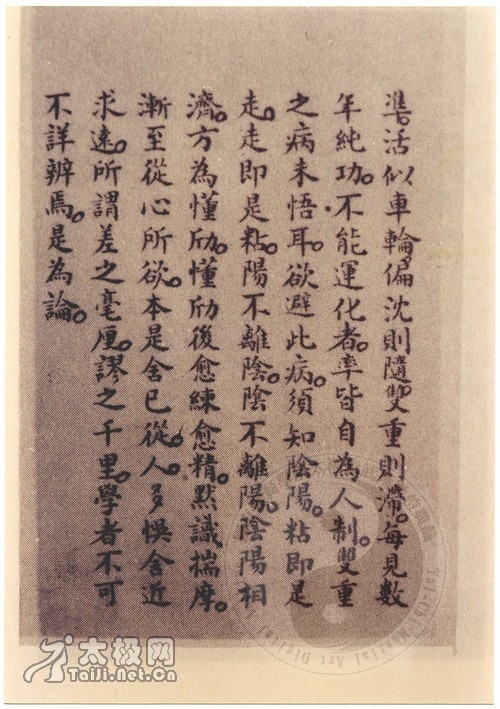 準活似車輪偏沈則隨。雙重則滯。每見數
年純功。不能運化者。率皆自為人制。雙重
之病未悟耳。欲避此病。須知陰陽。粘即是
走。走即是粘。陽不離陰。陰不離陽。陰陽相
濟。方為懂劤。懂劤後愈練愈精。默識揣摩。
漸至從心所欲。本是舍己從。人多悞舍近
求遠。所謂差之毫厘。謬之千里。學者不可
不詳辨焉。是為論。
太极网
TaiJi.Net.Cn
Tai-Chi Martial Art Digital